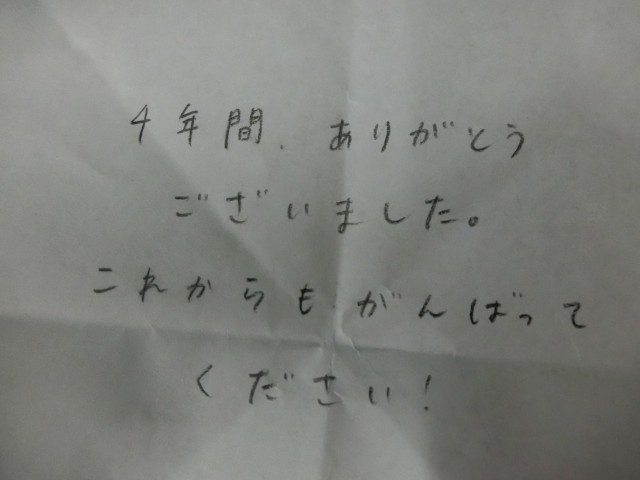 4年間、ありがとう
ございました。
これからもがんばって
ください!